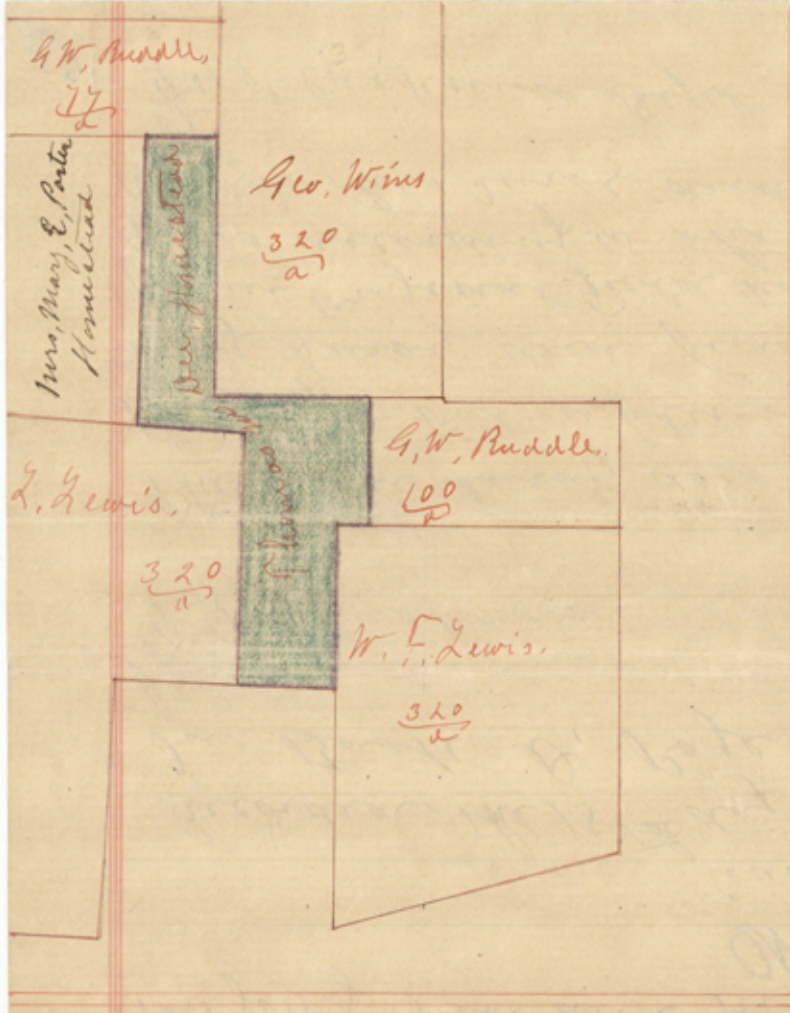 G. W. Ruddle,
77
a
Mrs, Mary, E, Porter
Homestead
Geo, Wims
320
a
Homestead
Thomas
G, W, Ruddle.
100
a
L. Lewis.
320
a
W. F. Lewis.
320
a